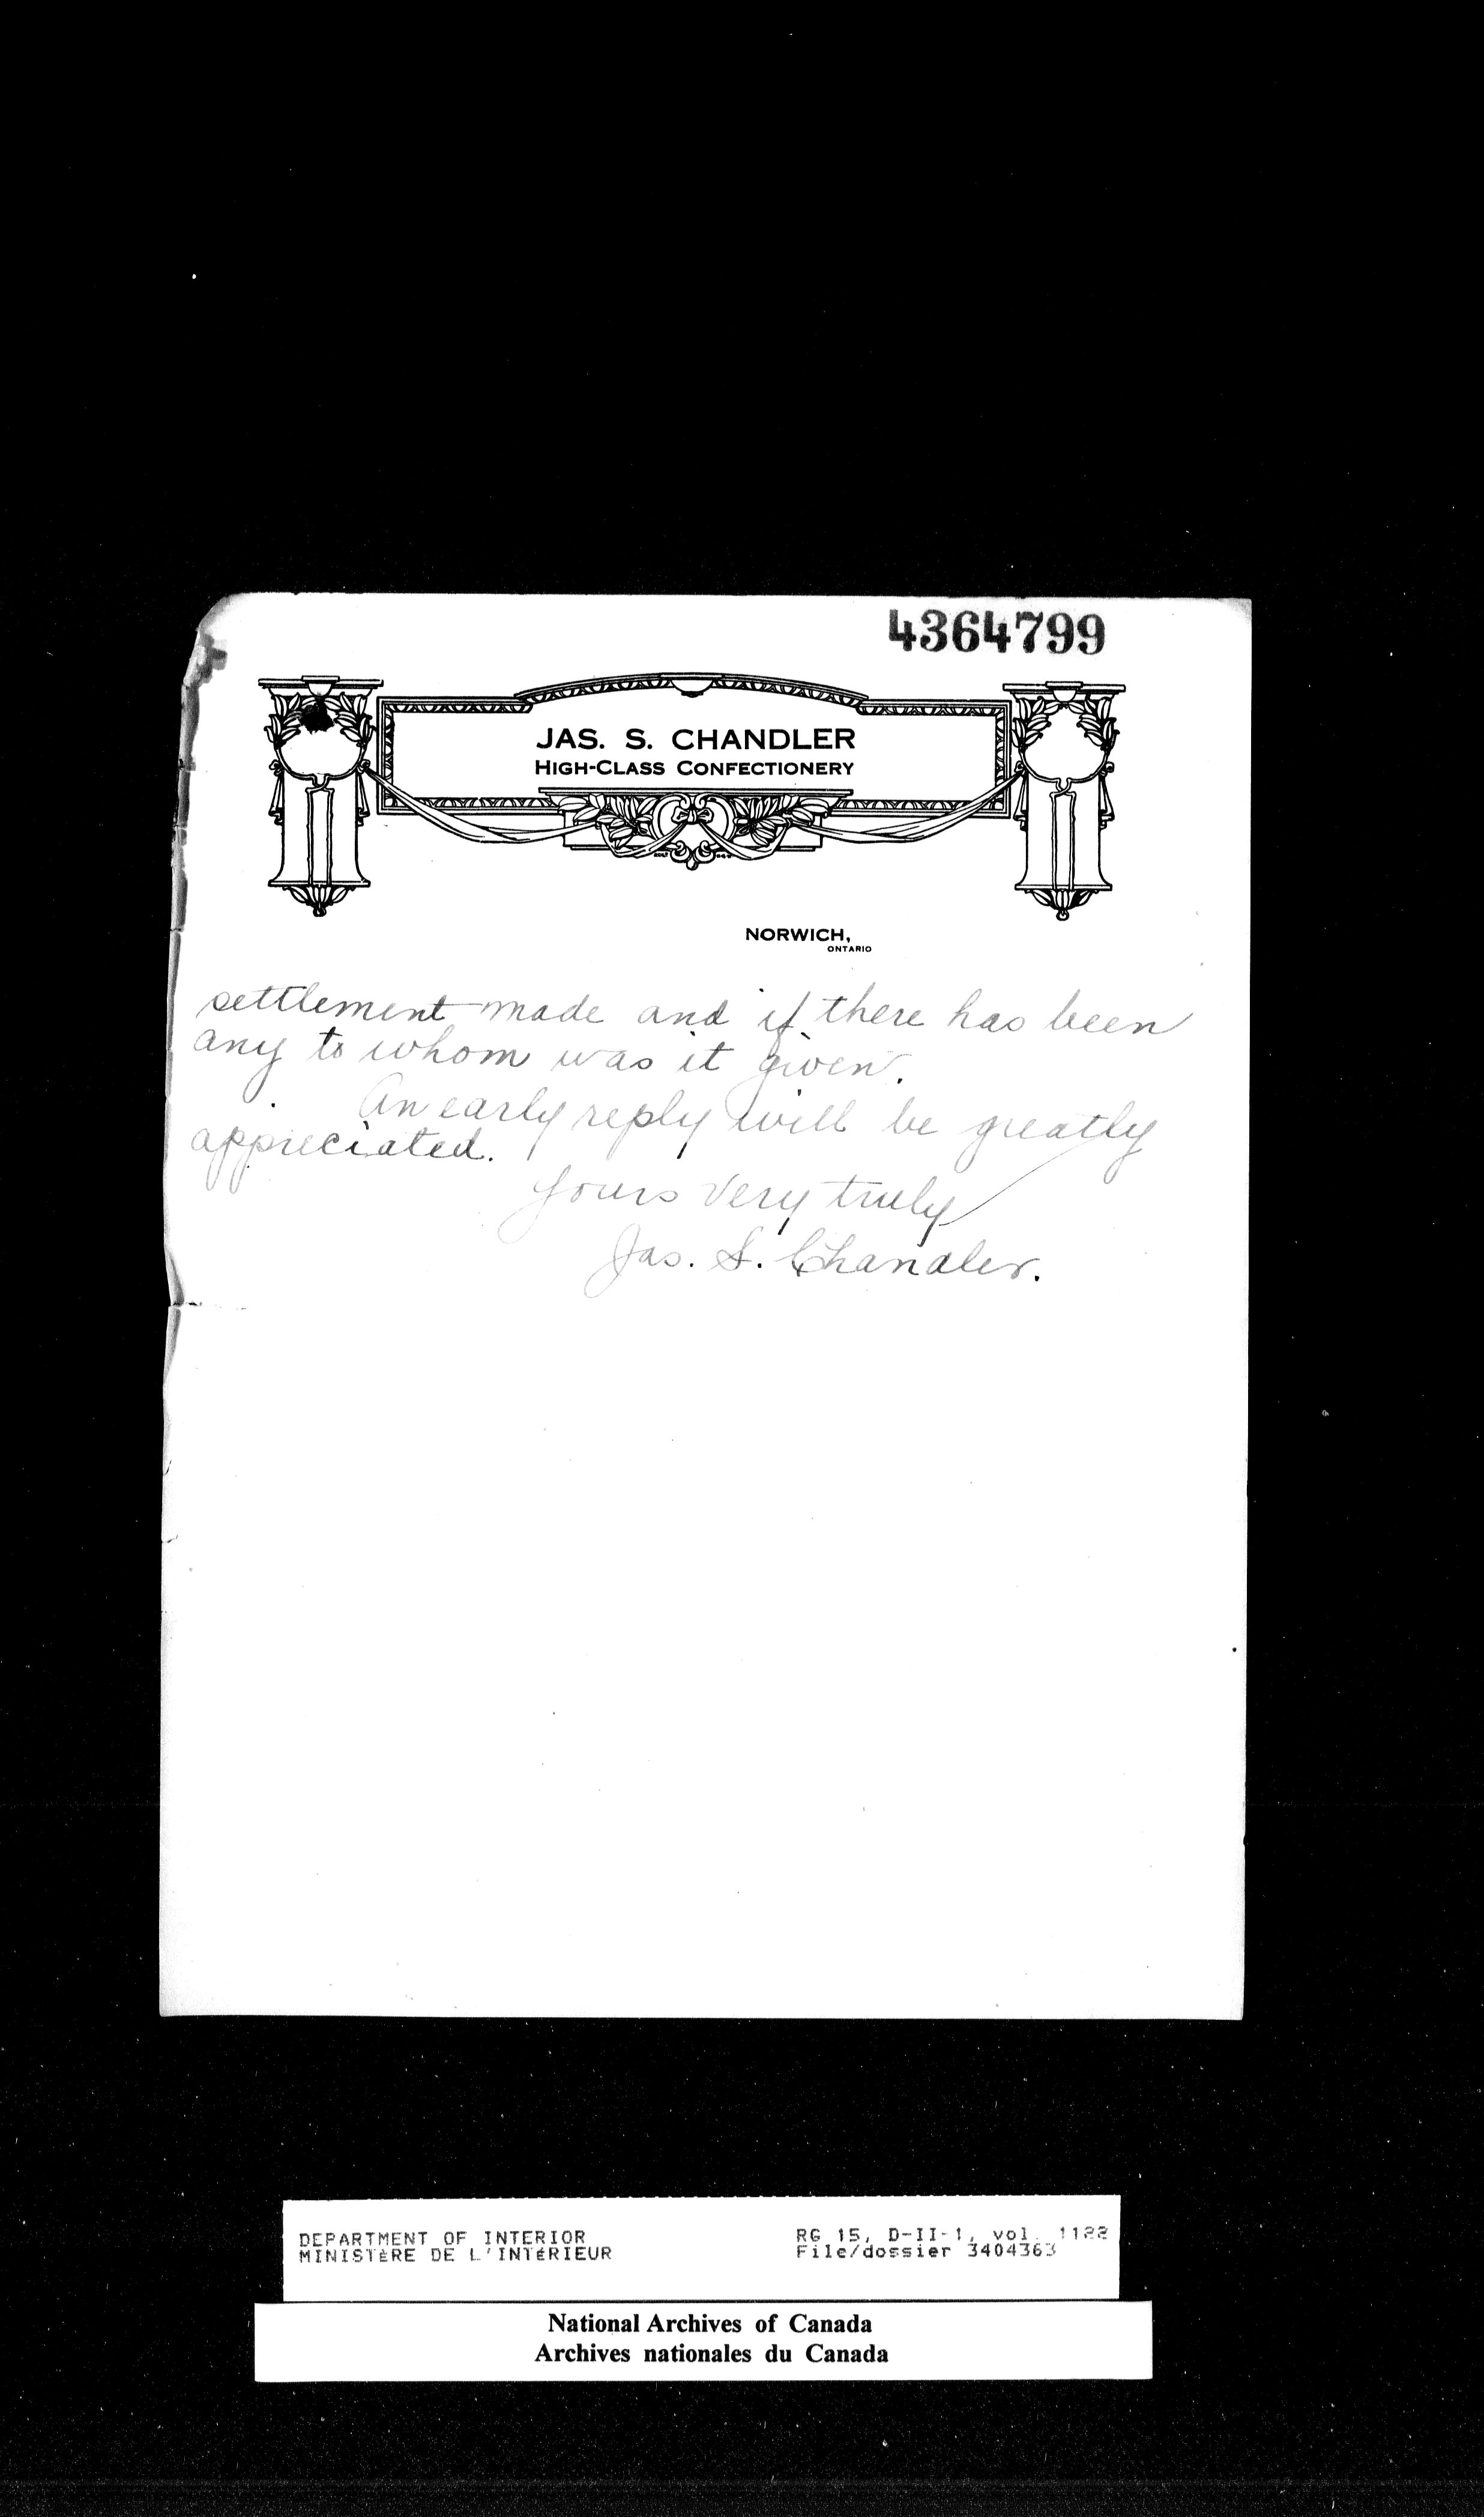 4364799
JAS. S. CHANDLER
HIGH-CLASS CONFECTIONERY
NORWICH,
ONTARIO
settlement made and if there has been
any to whom was it given.
An early reply will be greatly
appreciated.
Yours Very truly
Jas. S. Chandler.
DEPARTMENT OF INTERIOR
MINISTÈRE DE L'INTÉRIEUR
RG 15, D-II-1, vol. 1122
File/dossier 3404363
National Archives of Canada
Archives nationales du Canada